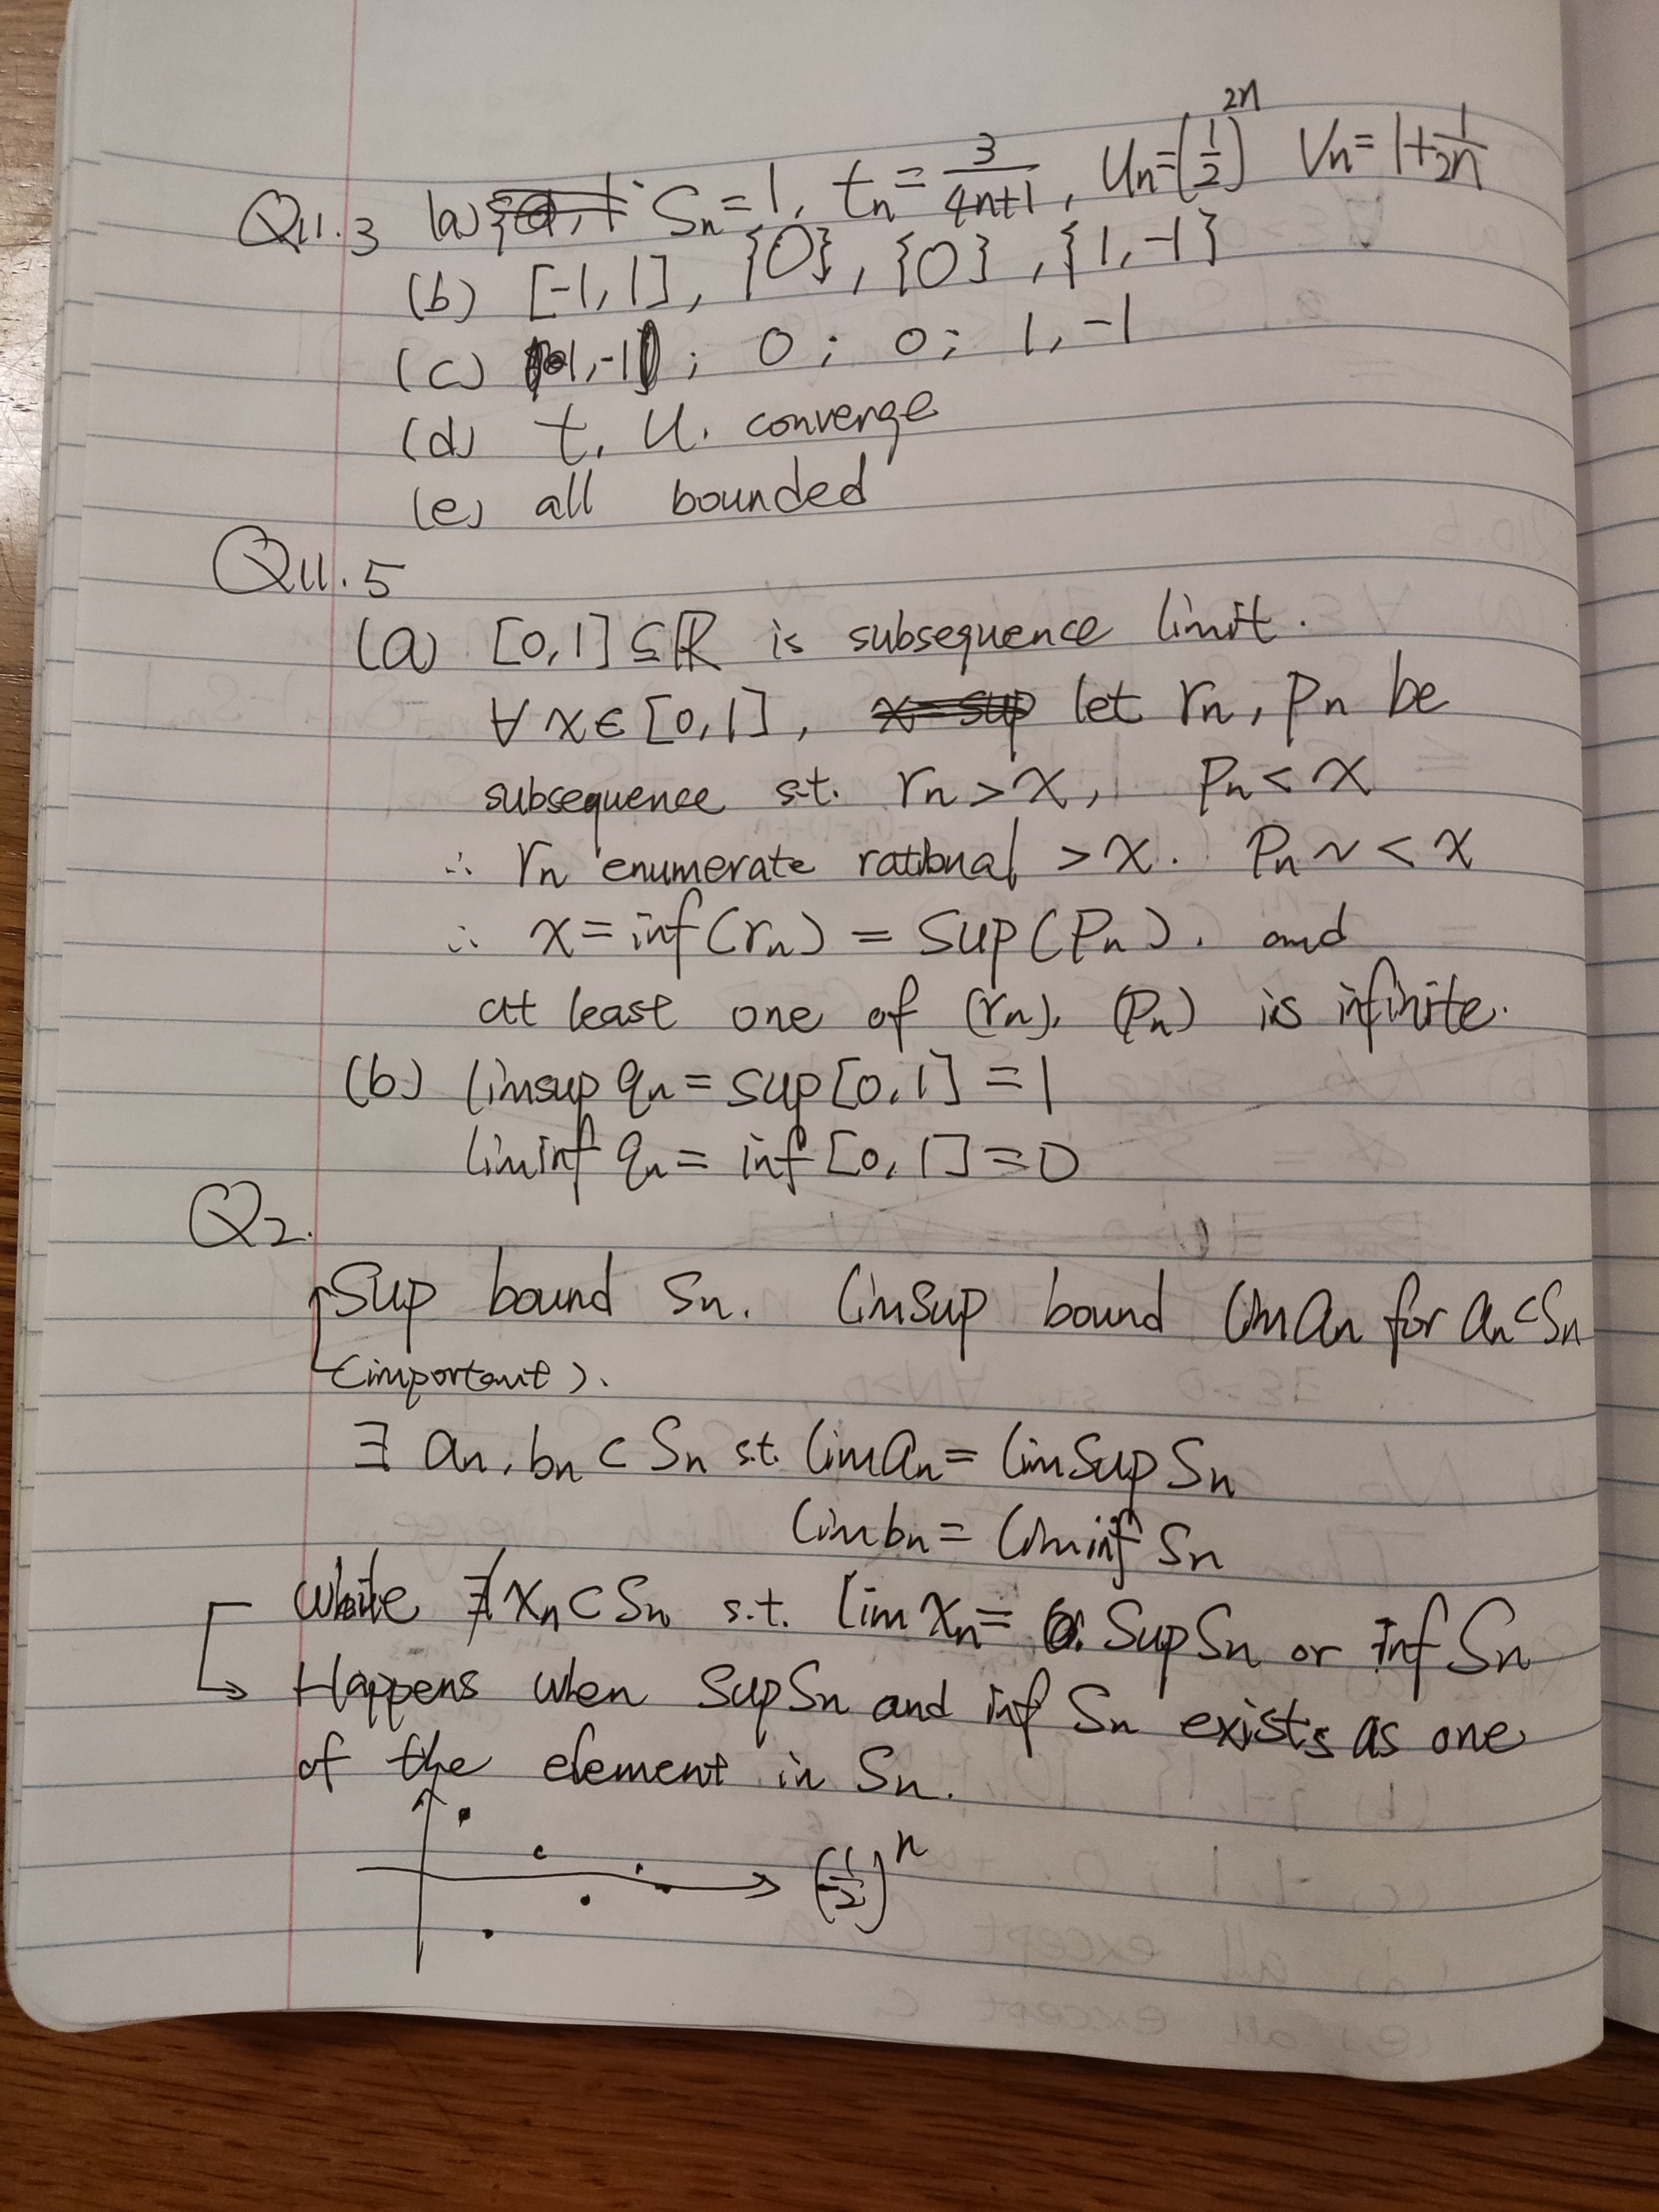 Q11.3 (a) Sn=1, tn=3/(4n+1), Un=(1/2)^2n Vn=1+1/2n
(b) [-1,1], {0}, {0}, {1,-1}
(c) 1,-1; 0; 0; 1,-1
(d) t, U. converge
(e) all bounded
Q11.5
(a) [0,1]⊆ℝ is subsequence limit.
∀x∈[0,1], x=sup let rn, pn be
subsequence s.t. rn>x, pn<x
∴ rn enumerate rational >x. Pn ~ <x
∴ x=inf(rn)=sup(Pn). and
at least one of (rn), (Pn) is infinite.
(b) limsup qn=sup[0,1]=1
liminf qn=inf[0,1]=0
Q2.
Sup bound Sn. limsup bound liman for an⊂Sn
(important).
∃ an, bn⊂Sn s.t. liman=limsup Sn
limbn=liminf Sn
while ∄xn⊂Sn s.t. lim xn= SupSn or inf Sn
Happens when SupSn and inf Sn exists as one
of the element in Sn.
(-1/2)^n